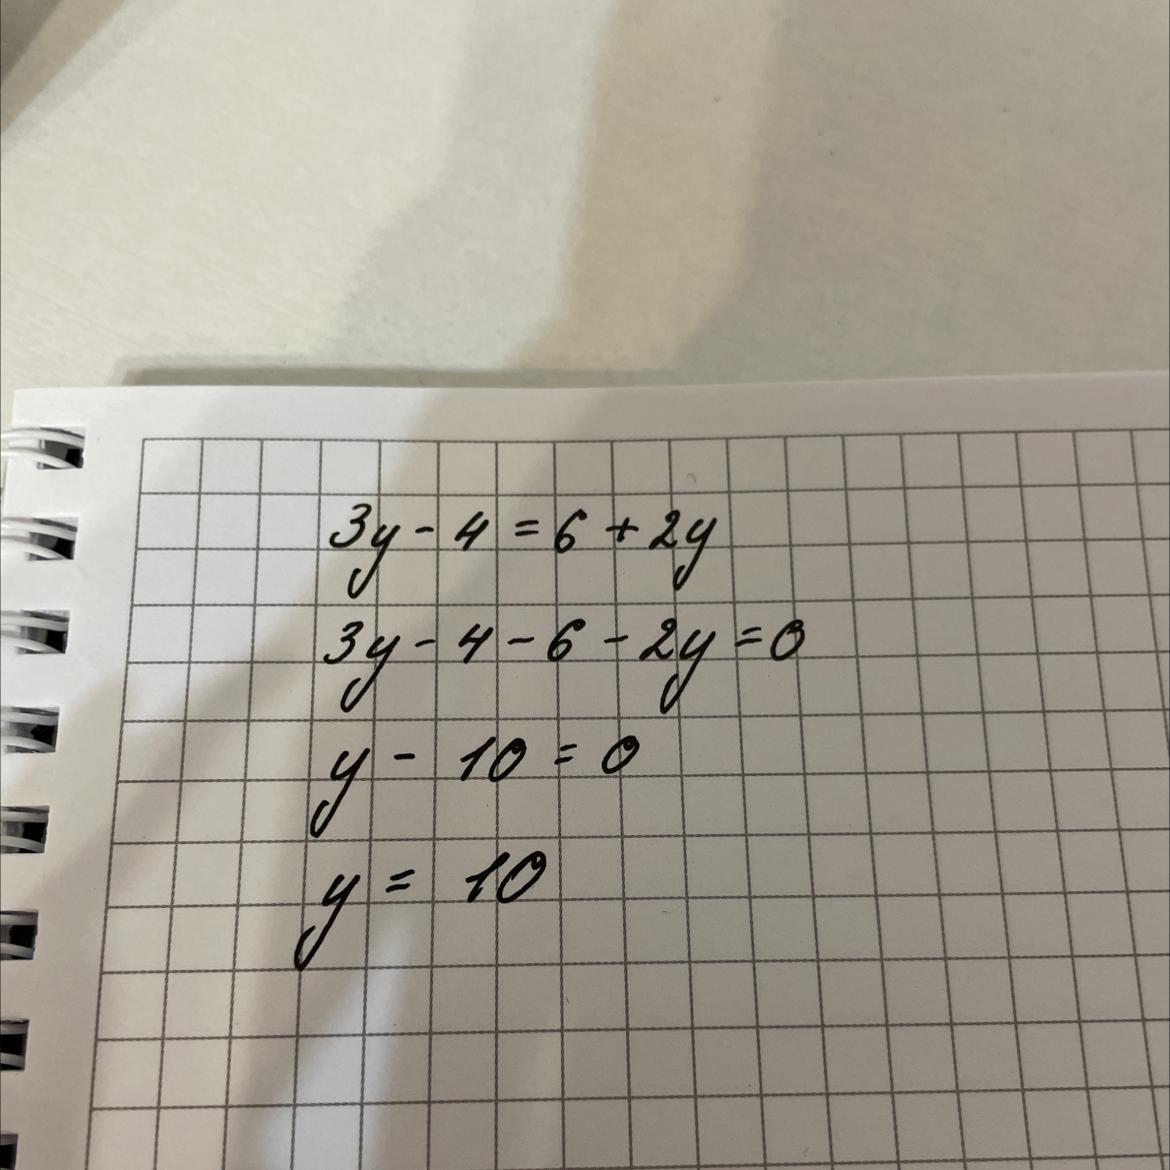 3y - 4 = 6 + 2y
3y - 4 - 6 - 2y = 0
y - 10 = 0
y = 10